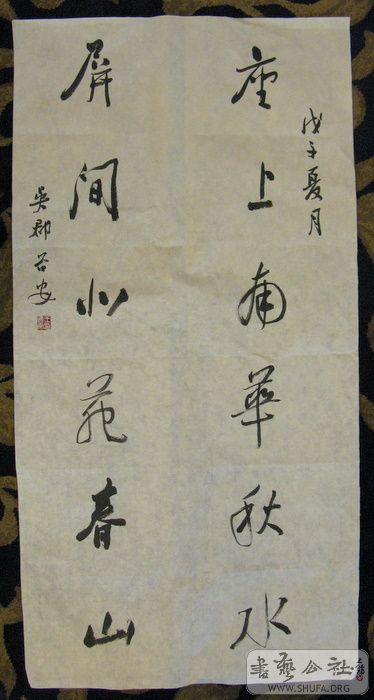 戊子夏月
座上南華秋水
屏間北苑春山
吳郡谷安
書藝公社
WWW.SHUFA.ORG